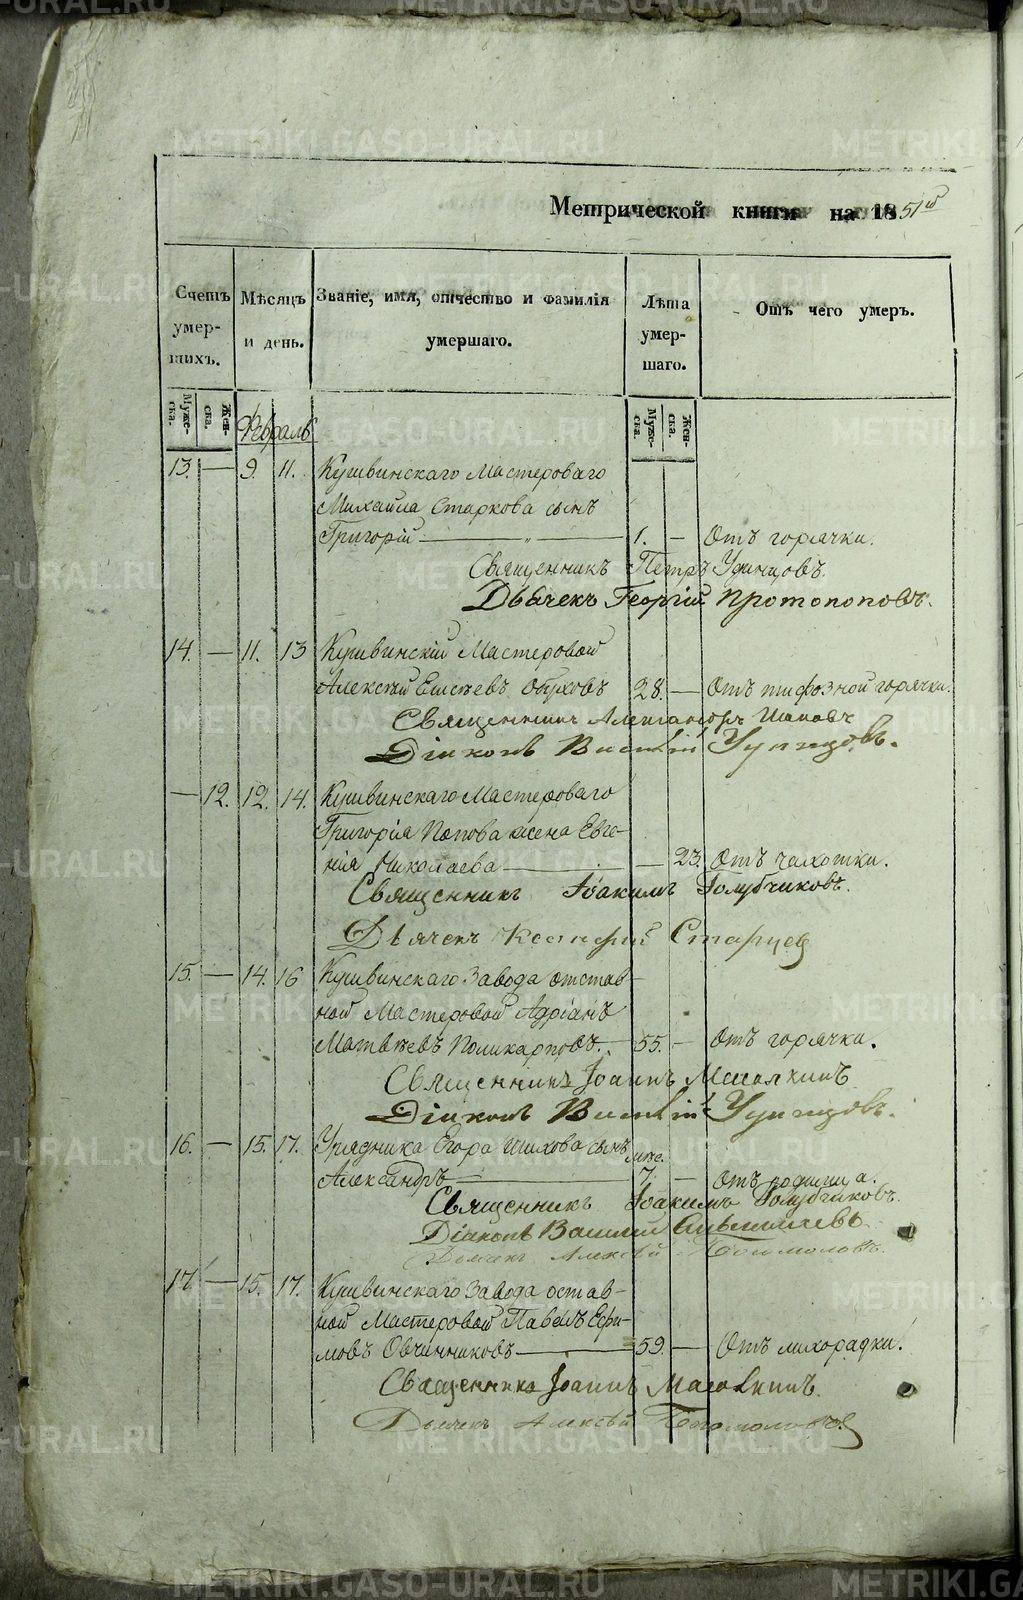 METRIKI.GASO-URAL.RU
Метрической книги на 1851й
Счетъ умершихъ.
Мѣсяцъ и день.
Званіе, имя, отчество и фамилія умершаго.
Лѣта умершаго.
Отъ чего умеръ.
Мужеска. Женска.
Мужеска. Женска.
Февраль
13. — 9. 11. Кушвинскаго Мастероваго
Михайла Старкова сынъ
Григорій — „ — 1. — Отъ горячки.
Священникъ Петръ Удинцовъ.
Дьячекъ Георгій Протопоповъ.
14. — 11. 13 Кушвинскій Мастеровой
Алексѣй Обуховъ 28. — Отъ тифозной горячки.
Священникъ Александръ
Діаконъ Василій Удинцовъ.
— 12. 12. 14. Кушвинскаго Мастероваго
Григорія Попова жена Евге-
нія Николаева — — 23. Отъ чахотки.
Священникъ Іоакимъ Голубчиковъ.
Дьячекъ Старцев
15. — 14. 16 Кушвинскаго Завода отстав-
ной Мастеровой Адріанъ
Матвѣевъ Поликарповъ. — 55. — Отъ горячки.
Священникъ Іоаннъ
Діаконъ Василій Удинцовъ.
16. — 15. 17. Урядника Егора Шихова сынъ мѣс.
Александръ — 7. — Отъ родимца.
Священникъ Іоакимъ Голубчиковъ.
Діаконъ Василий
Дьячекъ Алексѣй Богомоловъ.
17. — 15. 17. Кушвинскаго Завода остав-
ной Мастеровой Павелъ Ефи-
мовъ Овчинниковъ — 59. — Отъ лихорадки.
Священникъ Іоаннъ
Дьячекъ Алексѣй Богомоловъ